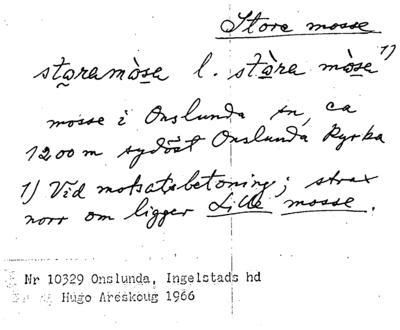 Store mosse
staramòsa l. stàra mòsa 1)
mosse i Onslunda sn, ca
1200 m sydöst Onslunda kyrka
1) Vid motsatsbetoning; strax
norr om ligger Lille mosse.
Nr 10329 Onslunda, Ingelstads hd
Hugo Areskoug 1966